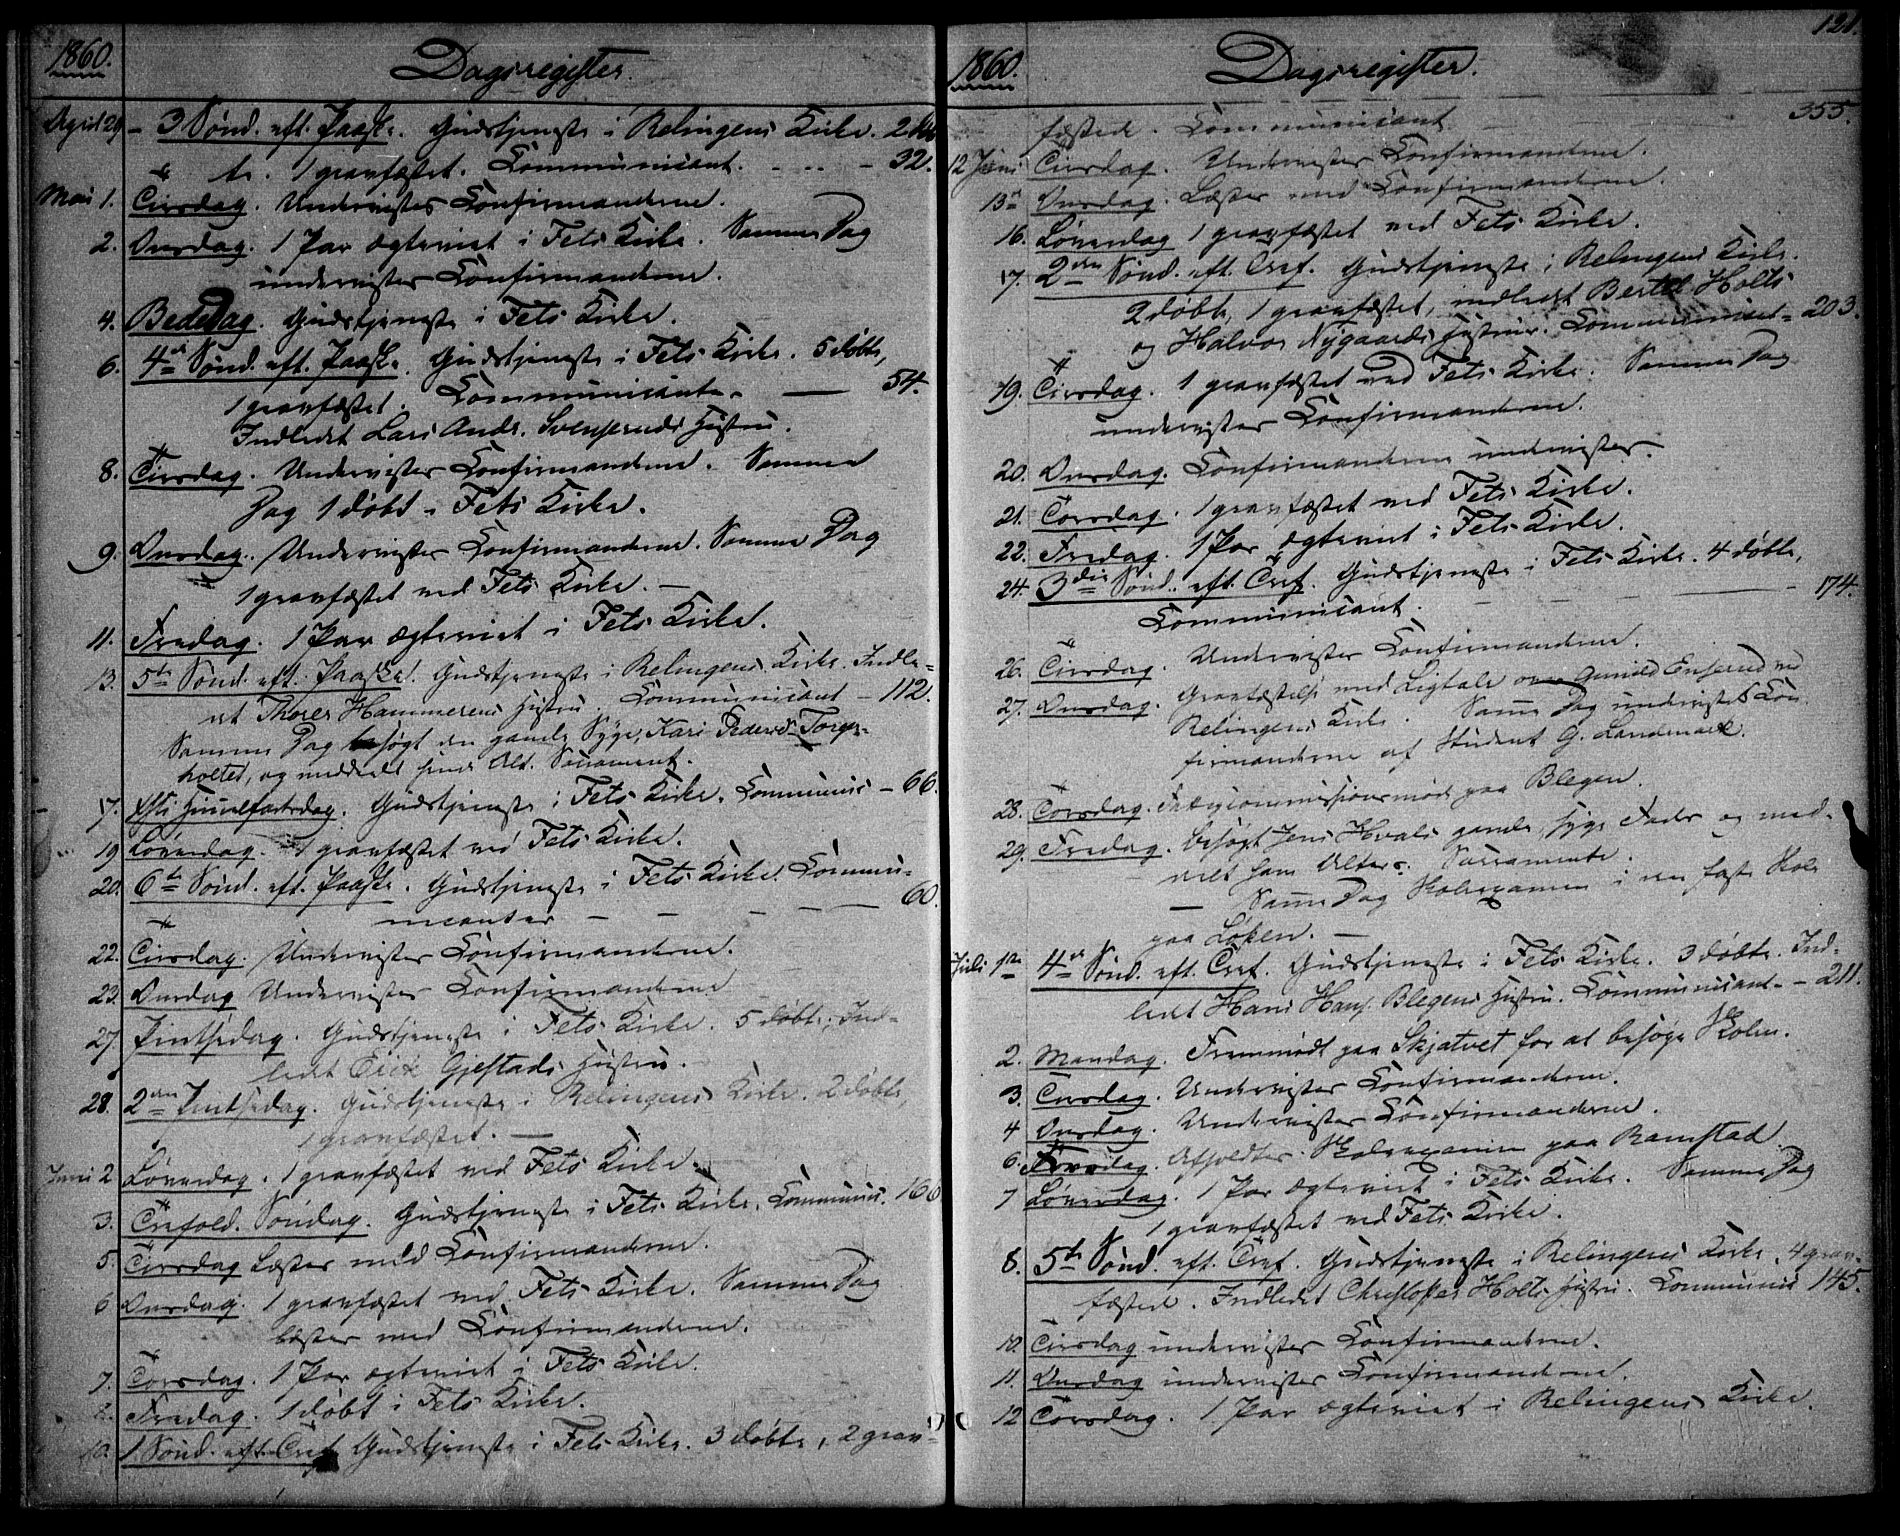 1860.
Dagsregister.
April 29 - 3 Sönd. eft. Paaske. Gudstjeneste i Relingens Kirke. 2 döb-
te. 1 gravfæstet. Communicant. - 32.
Mai 1. Tirsdag. Undervistes Confirmanderne.
2. Onsdag. 1 Par ægteviet i Fets Kirke. Samme Dag
undervistes Confirmanderne.
4. Bededag. Gudstjeneste i Fets Kirke.
6. 4de Sönd. eft. Paaske. Gudstjeneste i Fets Kirke. 5 döbte,
1 gravfæstet. Communicante. — 54.
Indledet Lars Andr. Svenserud's Hustru.
8. Tirsdag. Undervistes Confirmanderne. Samme
Dag 1 döbt i Fets Kirke.
9. Onsdag. Undervistes Confirmanderne. Samme Dag
1 gravfæstet ved Fets Kirke. —
11. Fredag. 1 Par ægteviet i Fets Kirke.
13. 5te Sönd. eft. Paaske. Gudstjeneste i Relingens Kirke. Indle-
det Thores Hammerens Hustru. Communicant - 112.
Samme Dag besøgt den gamle Syge, Kari Pedersd. Torger-
holtet, og meddeelt hende Alt. Sacrament.
17. Xsti Himmelfartsdag. Gudstjeneste i Fets Kirke. Communic - 66.
19 Löverdag. 1 gravfæstet ved Fets Kirke.
20. 6te Sönd. eft. Paaske. Gudstjeneste i Fets Kirke. Commu-
nicanter - - - - — 60.
22. Tirsdag. Undervistes Confirmanderne.
23. Onsdag Undervistes Confirmanderne
27. Pintsedag. Gudstjeneste i Fets Kirke. 5 döbte, Ind-
ledt Erik Gjestads Hustru.
28. 2den Pintsedag. Gudstjeneste i Relingens Kirke. 2 döbte
1 gravfæstet. —
Juni 2 Löverdag. 1 gravfæstet ved Fets Kirke.
3. Trefold. Söndag. Gudstjeneste i Fets Kirke. Communic. 166
5. Tirsdag Læstes med Confirmanderne.
6 Onsdag. 1 gravfæstet ved Fets Kirke. Samme Dag
læstes med Confirmanderne.
7. Torsdag. 1 Par ægteviet i Fets Kirke.
8. Fredag. 1 döbt i Fets Kirke.
10. 1 Sönd. eft. Tref. Gudstjeneste i Fets Kirke. 3 döbte, 2 grav-
121.
1860.
Dagsregister.
fæstede. Communicant 355.
12 Juni Tirsdag. Undervistes Confirmanderne.
13de Onsdag. Læstes med Confirmanderne.
16. Löverdag 1 gravfæstet ved Fets Kirke.
17. 2den Sönd. eft. Tref. Gudstjeneste i Relingens Kirke.
2 döbte, 1 gravfæstet, indledt Bertel Holts
og Halvor Nygaards Hustruer. Communicant - 203.
19. Tirsdag. 1 gravfæstet ved Fets Kirke. Samme Dag
undervistes Confirmanderne.
20. Onsdag. Confirmanderne undervistes.
21. Torsdag. 1 gravfæstet ved Fets Kirke.
22. Fredag. 1 Par ægteviet i Fets Kirke.
24. 3die Sönd. eft. Tref. Gudstjeneste i Fets Kirke. 4 döbte,
Communicant. - 174.
26. Tirsdag. Undervistes Confirmanderne.
27. Onsdag. Gravfæstelse med Ligtale over Gunild Enserud ved
Relingens Kirke. Samme Dag undervistes Con
firmanderne af Student G. Landmark.
28. Torsdag. Fattigcommissionsmøde paa Blegen.
29. Fredag. besøgt Jens Hvals gamle, syge Fader og med-
delt ham Alters. Sacramente.
— Samme Dag Skoleexamen i den faste Skole
paa Løken. —
Juli 1ste 4de Sönd. eft. Tref. Gudstjeneste i Fets Kirke. 3 döbte. Ind-
ledt Hans Hans. Blegens Hustru. Communicant - 211.
2. Mandag. Fremmödt paa Skjatvet for at besøge Skolen.
3. Tirsdag. Undervistes Confirmanderne.
4 Onsdag. Undervistes Confirmanderne.
6. Fredag. Afholdtes Skoleexamen paa Ramstad.
7 Löverdag. 1 Par ægteviet i Fets Kirke. Samme Dag
1 gravfæstet ved Fets Kirke.
8. 5te Sönd. eft. Tref. Gudstjeneste i Relingens Kirke, 4 grav-
fæstede. Indledet Christopher Holts Hustru. Communic 145.
10. Tirsdag undervistes Confirmanderne.
11. Onsdag undervistes Confirmanderne.
12 Torsdag. 1 Par ægteviet i Relingens Kirke.